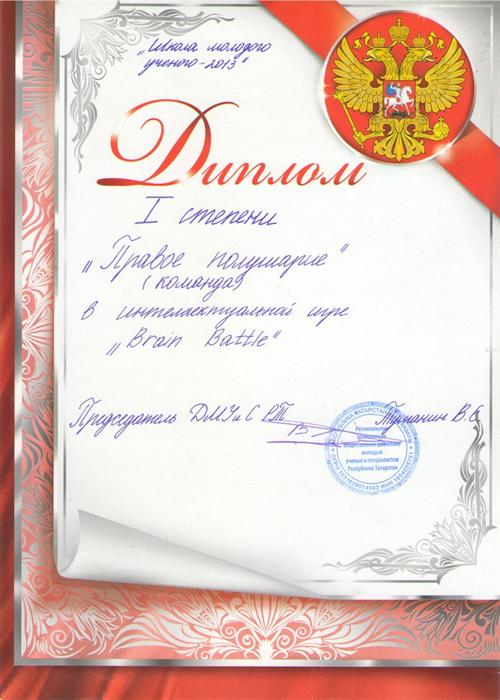 „Школа молодого
ученого-2013"
Диплом
I степени
„Правое полушарие"
(команда)
в интеллектуальной игре
„Brain Battle"
Председатель ДМУиС РТ Тупанин В.С.
Региональное
общественное движение
молодых
ученых и специалистов
Республики Татарстан